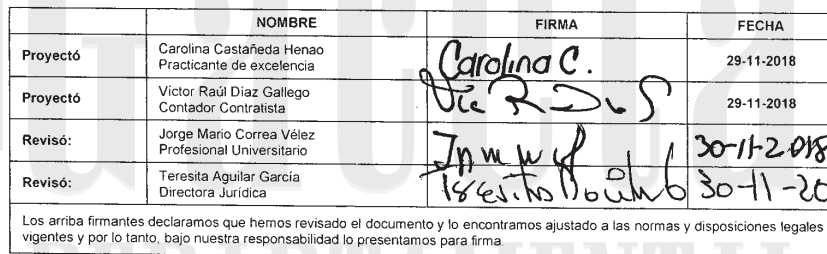 NOMBRE FIRMA FECHA
Proyectó Carolina Castañeda Henao
Practicante de excelencia Carolina C. 29-11-2018
Proyectó Victor Raúl Diaz Gallego
Contador Contratista 29-11-2018
Revisó: Jorge Mario Correa Vélez
Profesional Universitario 30-11-2018
Revisó: Teresita Aguilar García
Directora Jurídica 30-11-20
Los arriba firmantes declaramos que hemos revisado el documento y lo encontramos ajustado a las normas y disposiciones legales
vigentes y por lo tanto, bajo nuestra responsabilidad lo presentamos para firma.